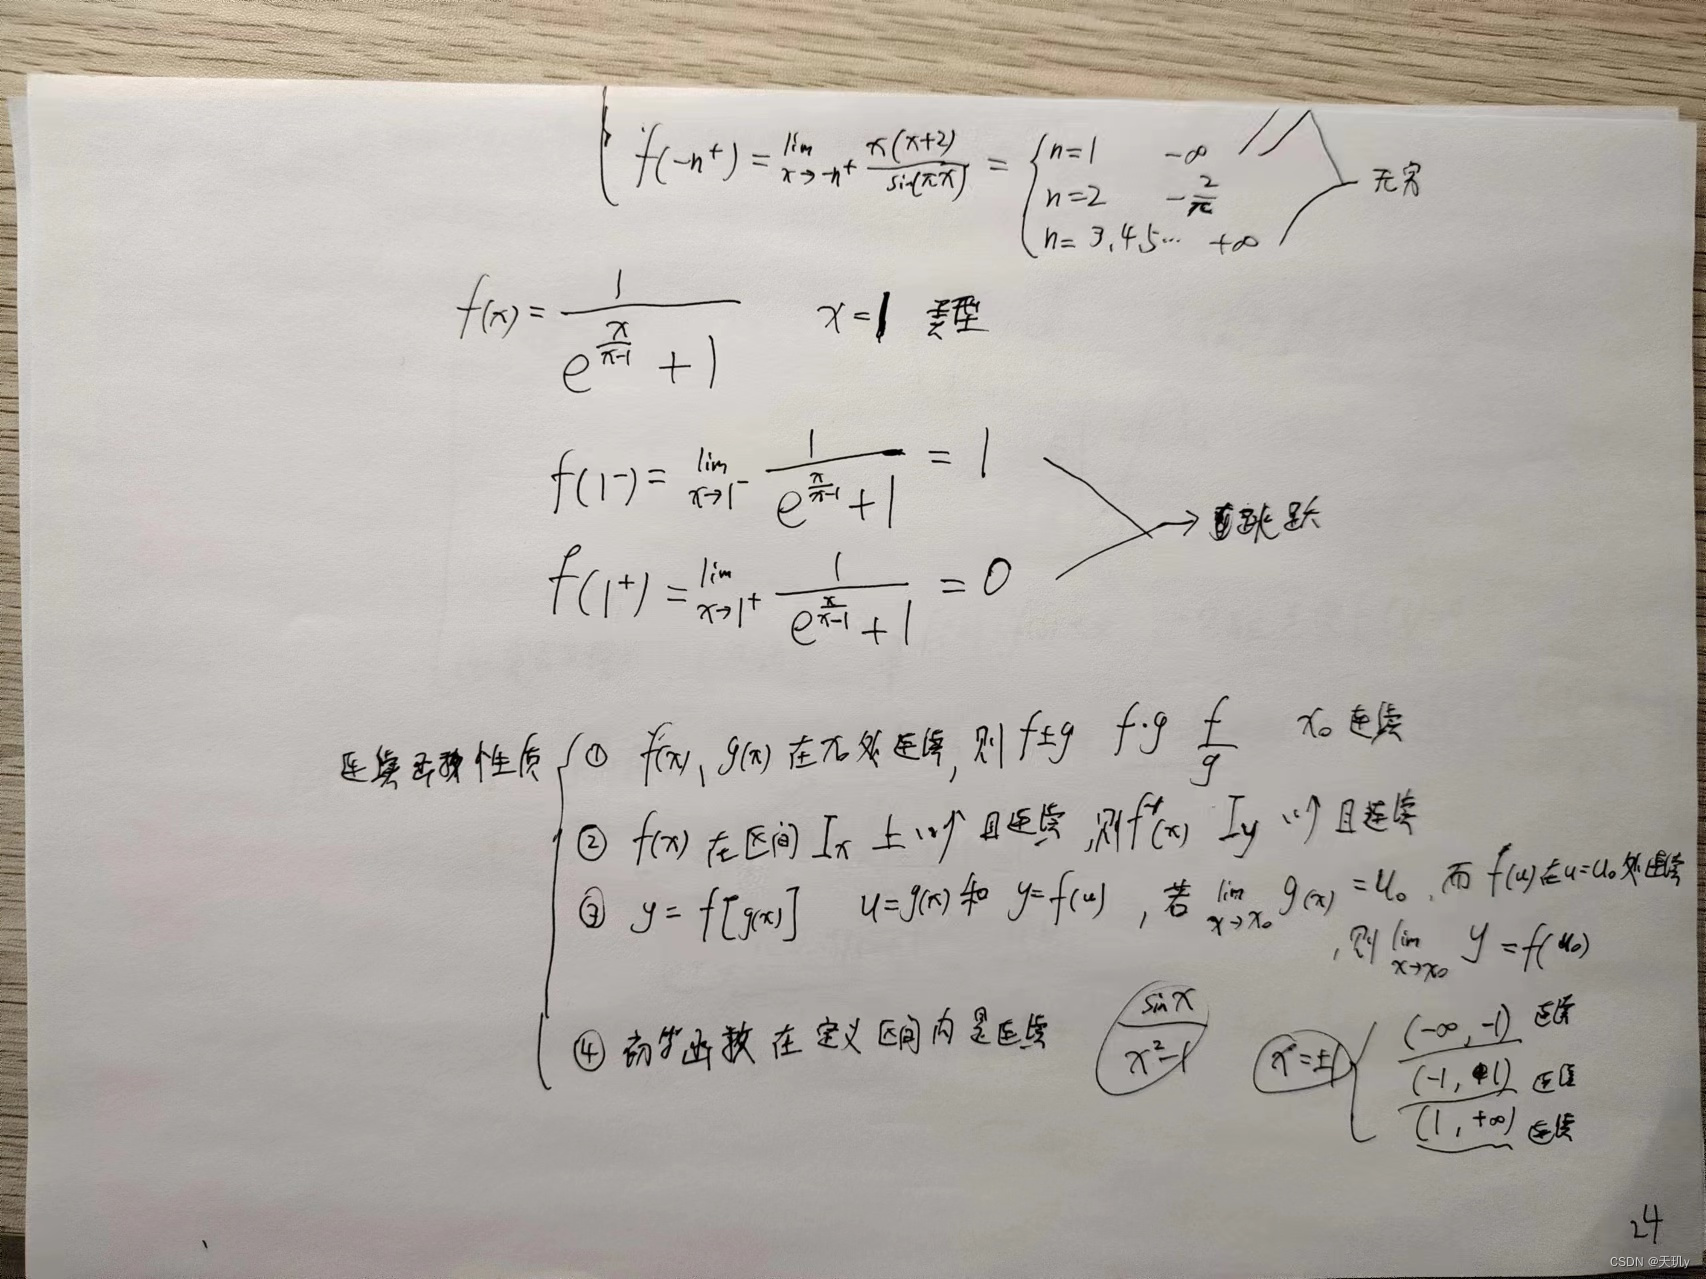 f(-n⁺) = lim x→-n⁺ x(x+2)/sin(πx) = { n=1 -∞
n=2 -2/π
n=3,4,5… +∞
无穷
f(x) = 1/(e^(x/(x-1)) + 1) x=1 类型
f(1⁻) = lim x→1⁻ 1/(e^(x/(x-1)) + 1) = 1
→ 跳跃
f(1⁺) = lim x→1⁺ 1/(e^(x/(x-1)) + 1) = 0
连续函数性质 { ① f(x), g(x) 在 x₀ 处连续, 则 f±g f·g f/g x₀ 连续
② f(x) 在区间 Ix 上 ↑ 且连续, 则 f⁻¹(x) Iy ↑ 且连续
③ y = f[g(x)] u=g(x) 和 y=f(u), 若 lim x→x₀ g(x) = u₀, 而 f(u) 在 u=u₀ 处连续
, 则 lim x→x₀ y = f(u₀)
④ 初等函数在定义区间内是连续 sinx/(x²-1) x=±1 { (-∞, -1) 连续
(-1, 1) 连续
(1, +∞) 连续
24
CSDN @天玑y